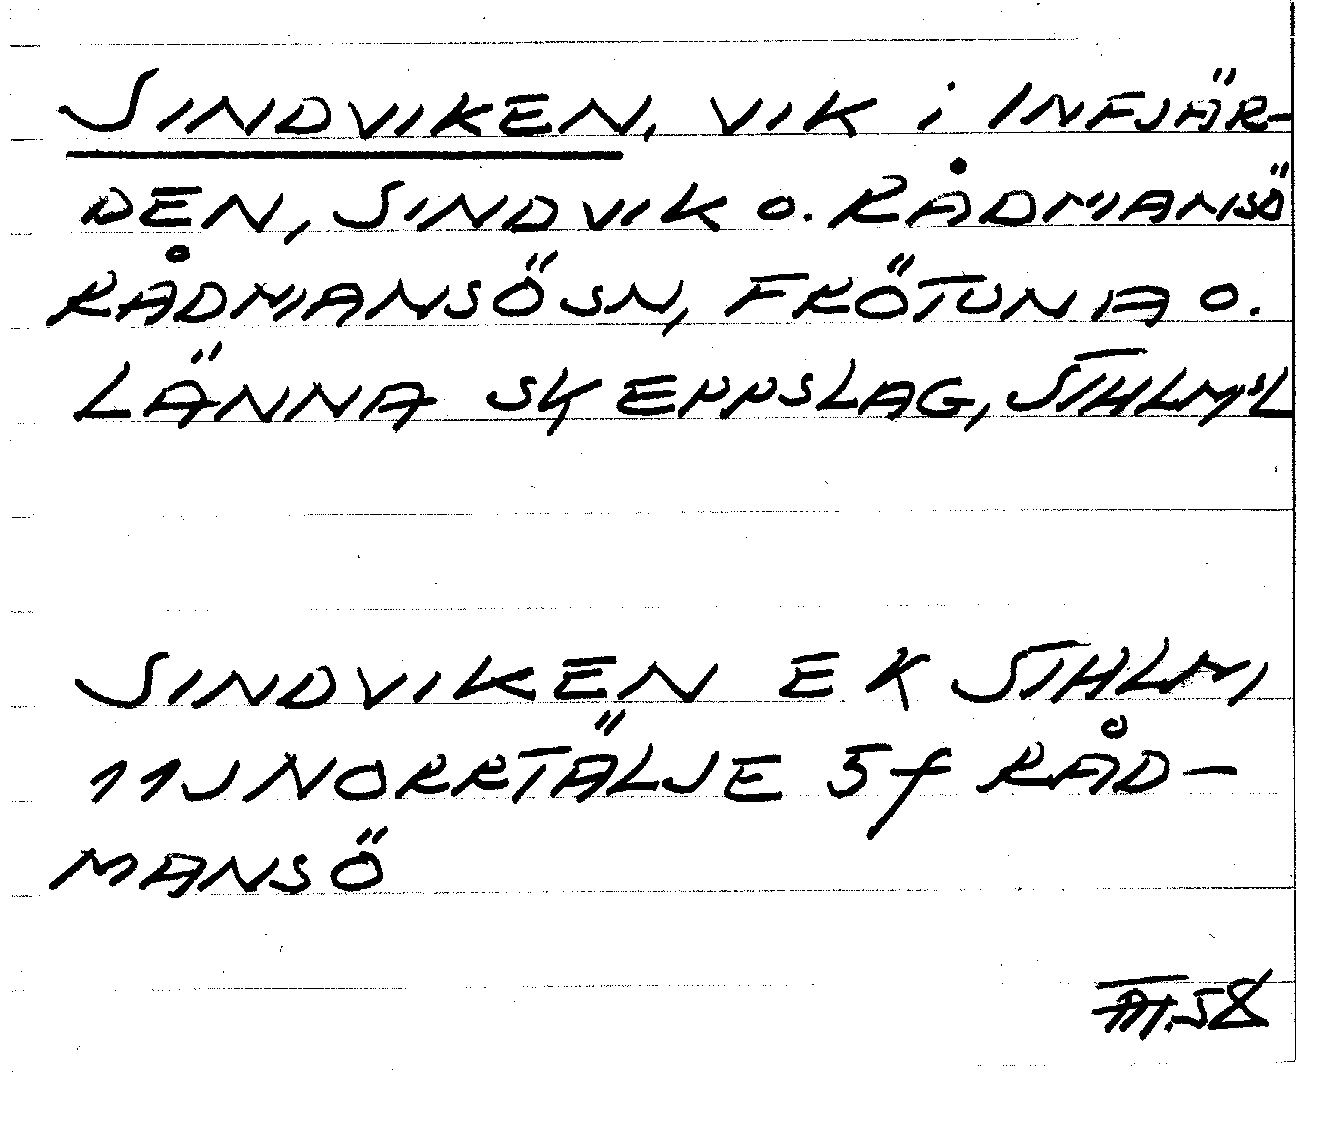 SINDVIKEN, VIK i INFJÄR-
DEN, SINDVIK o. RÅDMANSÖ
RÅDMANSÖ SN, FRÖTUNA o.
LÄNNA SKEPPSLAG, STHLMSL
SINDVIKEN EK STHLM
11J NORRTÄLJE 5f RÅD-
MANSÖ